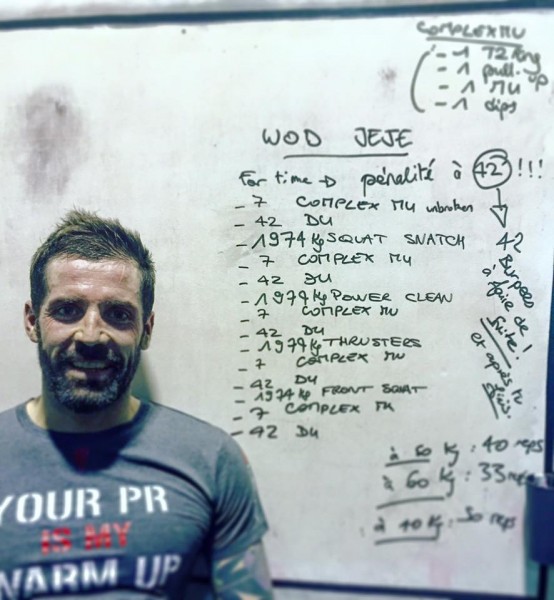 COMPLEX MU
- 1 T2Ring
- 1 pull-up
- 1 MU
- 1 dips
WOD JEJE
For time → pénalité à 42 !!!
- 7 COMPLEX MU unbroken
- 42 DU
- 1974 kg SQUAT SNATCH
- 7 COMPLEX MU
- 42 DU
- 1974 kg POWER CLEAN
- 7 COMPLEX MU
- 42 DU
- 1974 kg THRUSTERS
- 7 COMPLEX MU
- 42 DU
- 1974 kg FRONT SQUAT
- 7 COMPLEX MU
- 42 DU
42
Burpees
à faire de
suite !
et après tu
finis.
à 50 kg : 40 reps
à 60 kg : 33 reps
à 40 kg : 50 reps
YOUR PR
IS MY
WARM UP